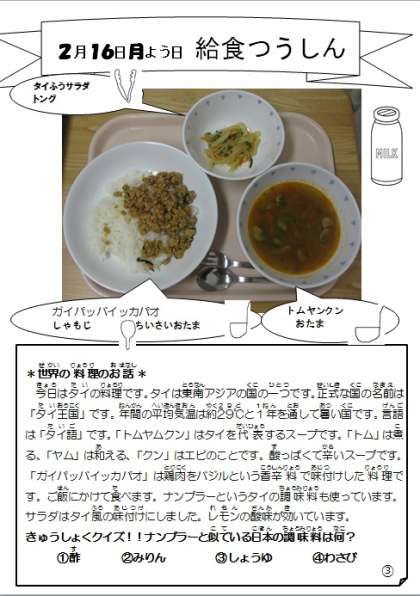 2月16日月よう日 給食つうしん
タイふうサラダ
トング
MILK
ガイパッパイッカパオ
しゃもじ ちいさいおたま
トムヤンクン
おたま
＊世界の料理のお話＊
今日はタイの料理です。タイは東南アジアの国の一つです。正式な国の名前は
「タイ王国」です。年間の平均気温は約29℃と1年を通して暑い国です。言語
は「タイ語」です。「トムヤムクン」はタイを代表するスープです。「トム」は煮
る、「ヤム」は和える、「クン」はエビのことです。酸っぱくて辛いスープです。
「ガイパッバイッカパオ」は鶏肉をバジルという香辛料で味付けした料理で
す。ご飯にかけて食べます。ナンプラーというタイの調味料も使っています。
サラダはタイ風の味付けにしました。レモンの酸味が効いています。
きゅうしょくクイズ！！ナンプラーと似ている日本の調味料は何？
①酢 ②みりん ③しょうゆ ④わさび
③